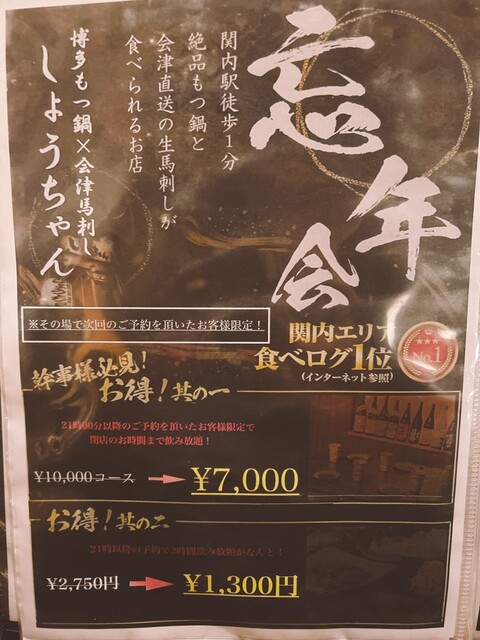 忘年会
関内駅徒歩1分
絶品もつ鍋と
会津直送の生馬刺しが
食べられるお店
博多もつ鍋×会津馬刺し
しょうちゃん
※その場で次回のご予約を頂いたお客様限定！
関内エリア
食べログ1位
(インターネット参照)
No.1
幹事様必見！
お得！其の一
21時00分以降のご予約を頂いたお客様限定で
閉店のお時間まで飲み放題！
¥10,000コース
¥7,000
お得！其の二
21時以降の予約で2時間飲み放題がなんと！
¥2,750円
¥1,300円